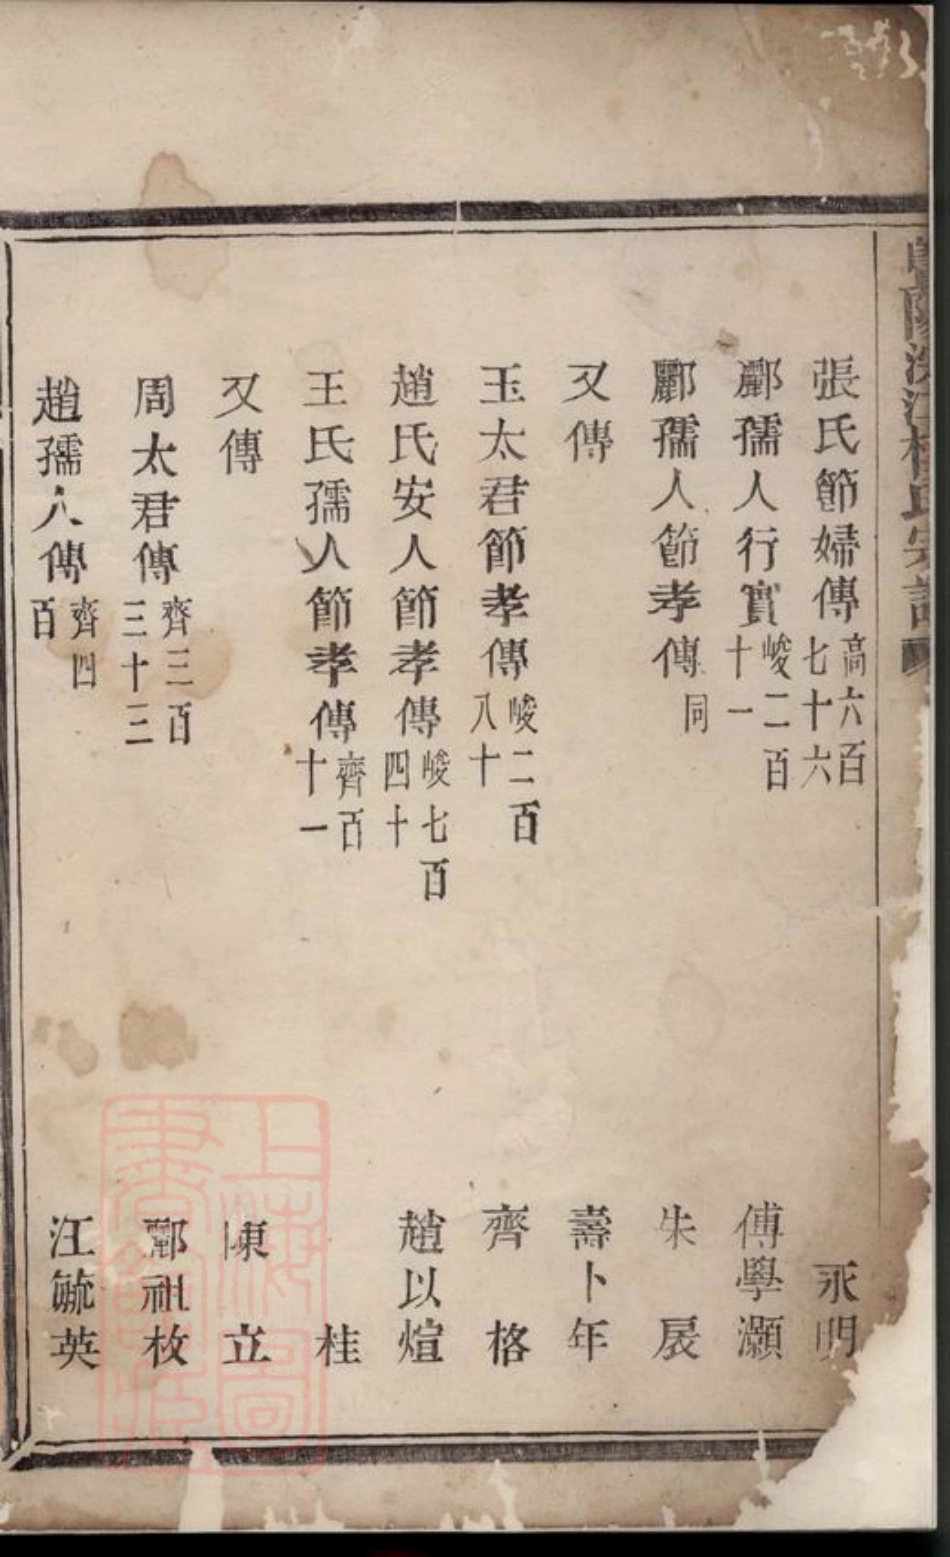 張氏節婦傳 高六百七十六 永明
酈孺人行實 峻二百十一 傅學灝
酈孺人節孝傳 同 朱扆
又傳 壽卜年
王太君節孝傳 峻二百八十 齊格
趙氏安人節孝傳 峻七百四十 趙以煊
王氏孺人節孝傳 齊百十一 桂
又傳 陳立
周太君傳 齊三百三十三 酈祖枚
趙孺人傳 齊四百 江毓英
上海圖書館藏